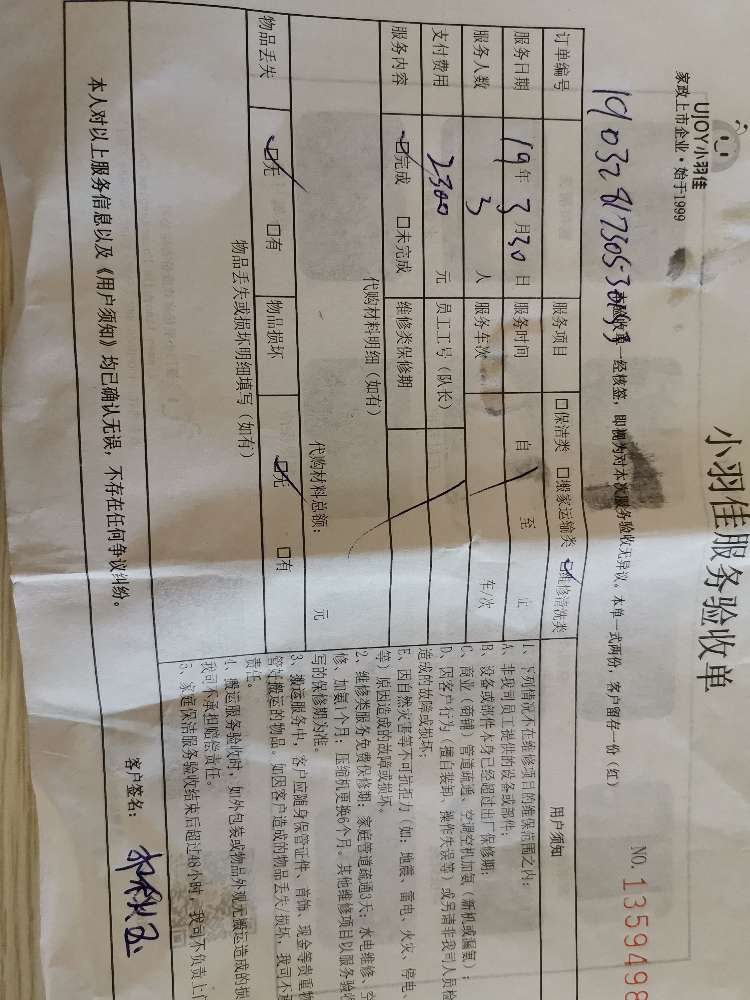 UJOY小羽佳
家政上市企业·始于1999
小羽佳服务验收单
NO.1359498
本验收单一经核签，即视为对本次服务验收无异议。本单一式两份，客户留存一份（红）
订单编号
服务项目 □保洁类 □搬家运输类 ☑维修清洗类
服务日期 19年3月30日 服务时间 自 至 止
服务人数 3 人 服务车次 车/次
支付费用 2300 元 员工工号（队长）
服务内容 ☑完成 □未完成 维修类保修期
代购材料明细（如有）
代购材料总额： 元
物品丢失 ☑无 □有 物品损坏 ☑无 □有
物品丢失或损坏明细填写（如有）
本人对以上服务信息以及《用户须知》均已确认无误，不存在任何争议纠纷。
用户须知
1、下列情况不在维修项目的维保范围之内：
A、非我司员工提供的设备或部件；
B、设备或部件本身已经超过出厂保修期；
C、商业（商铺）管道疏通、空调空机加氨（新机或漏氨）；
D、因客户行为（擅自装卸、操作失误等）或另请非我司人员检
造成的故障或损坏；
E、因自然灾害等不可抗拒力（如：地震、雷电、火灾、停电、
等）原因造成的故障或损坏。
2、维修类服务免费保修期：家庭管道疏通3天；水电维修、空
修、加氨1个月；压缩机更换6个月。其他维修项目以服务验收
写的保修期为准。
3、搬运服务中，客户应随身保管证件、首饰、现金等贵重物
管好搬运的物品。如因客户造成的物品丢失/损坏，我司不承
责任。
4、搬运服务验收时，如外包装或物品外观无搬运造成的损
我司不承担赔偿责任。
5、家庭保洁服务验收结束后超过48小时，我司不负责上门
客户签名：